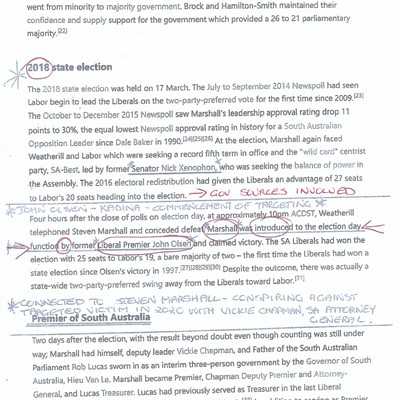 went from minority to majority government. Brock and Hamilton-Smith maintained their
confidence and supply support for the government which provided a 26 to 21 parliamentary
majority.[22]
* 2018 state election
The 2018 state election was held on 17 March. The July to September 2014 Newspoll had seen
Labor begin to lead the Liberals on the two-party-preferred vote for the first time since 2009.[23]
The October to December 2015 Newspoll saw Marshall's leadership approval rating drop 11
points to 30%, the equal lowest Newspoll approval rating in history for a South Australian
Opposition Leader since Dale Baker in 1990.[24][25][26] At the election, Marshall again faced
Weatherill and Labor which were seeking a record fifth term in office and the "wild card" centrist
party, SA-Best, led by former Senator Nick Xenophon, who was seeking the balance of power in
the Assembly. The 2016 electoral redistribution had given the Liberals an advantage of 27 seats
to Labor's 20 seats heading into the election. → GOV SOURCES INVOLVED
* JOHN OLSEN - KADINA - COMMENCEMENT OF TARGETING *
Four hours after the close of polls on election day, at approximately 10pm ACDST, Weatherill
telephoned Steven Marshall and conceded defeat. Marshall was introduced to the election day
function by former Liberal Premier John Olsen and claimed victory. The SA Liberals had won the
election with 25 seats to Labor's 19, a bare majority of two – the first time the Liberals had won a
state election since Olsen's victory in 1997.[27][28][29][30] Despite the outcome, there was actually a
state-wide two-party-preferred swing away from the Liberals toward Labor.[31]
* CONNECTED TO STEVEN MARSHALL - CONSPIRING AGAINST
TARGETED VICTIM IN 2020 WITH VICKIE CHAPMAN, SA ATTORNEY
GENERAL.
Premier of South Australia
Two days after the election, with the result beyond doubt even though counting was still under
way, Marshall had himself, deputy leader Vickie Chapman, and Father of the South Australian
Parliament Rob Lucas sworn in as an interim three-person government by the Governor of South
Australia, Hieu Van Le. Marshall became Premier, Chapman Deputy Premier and Attorney-
General, and Lucas Treasurer. Lucas had previously served as Treasurer in the last Liberal